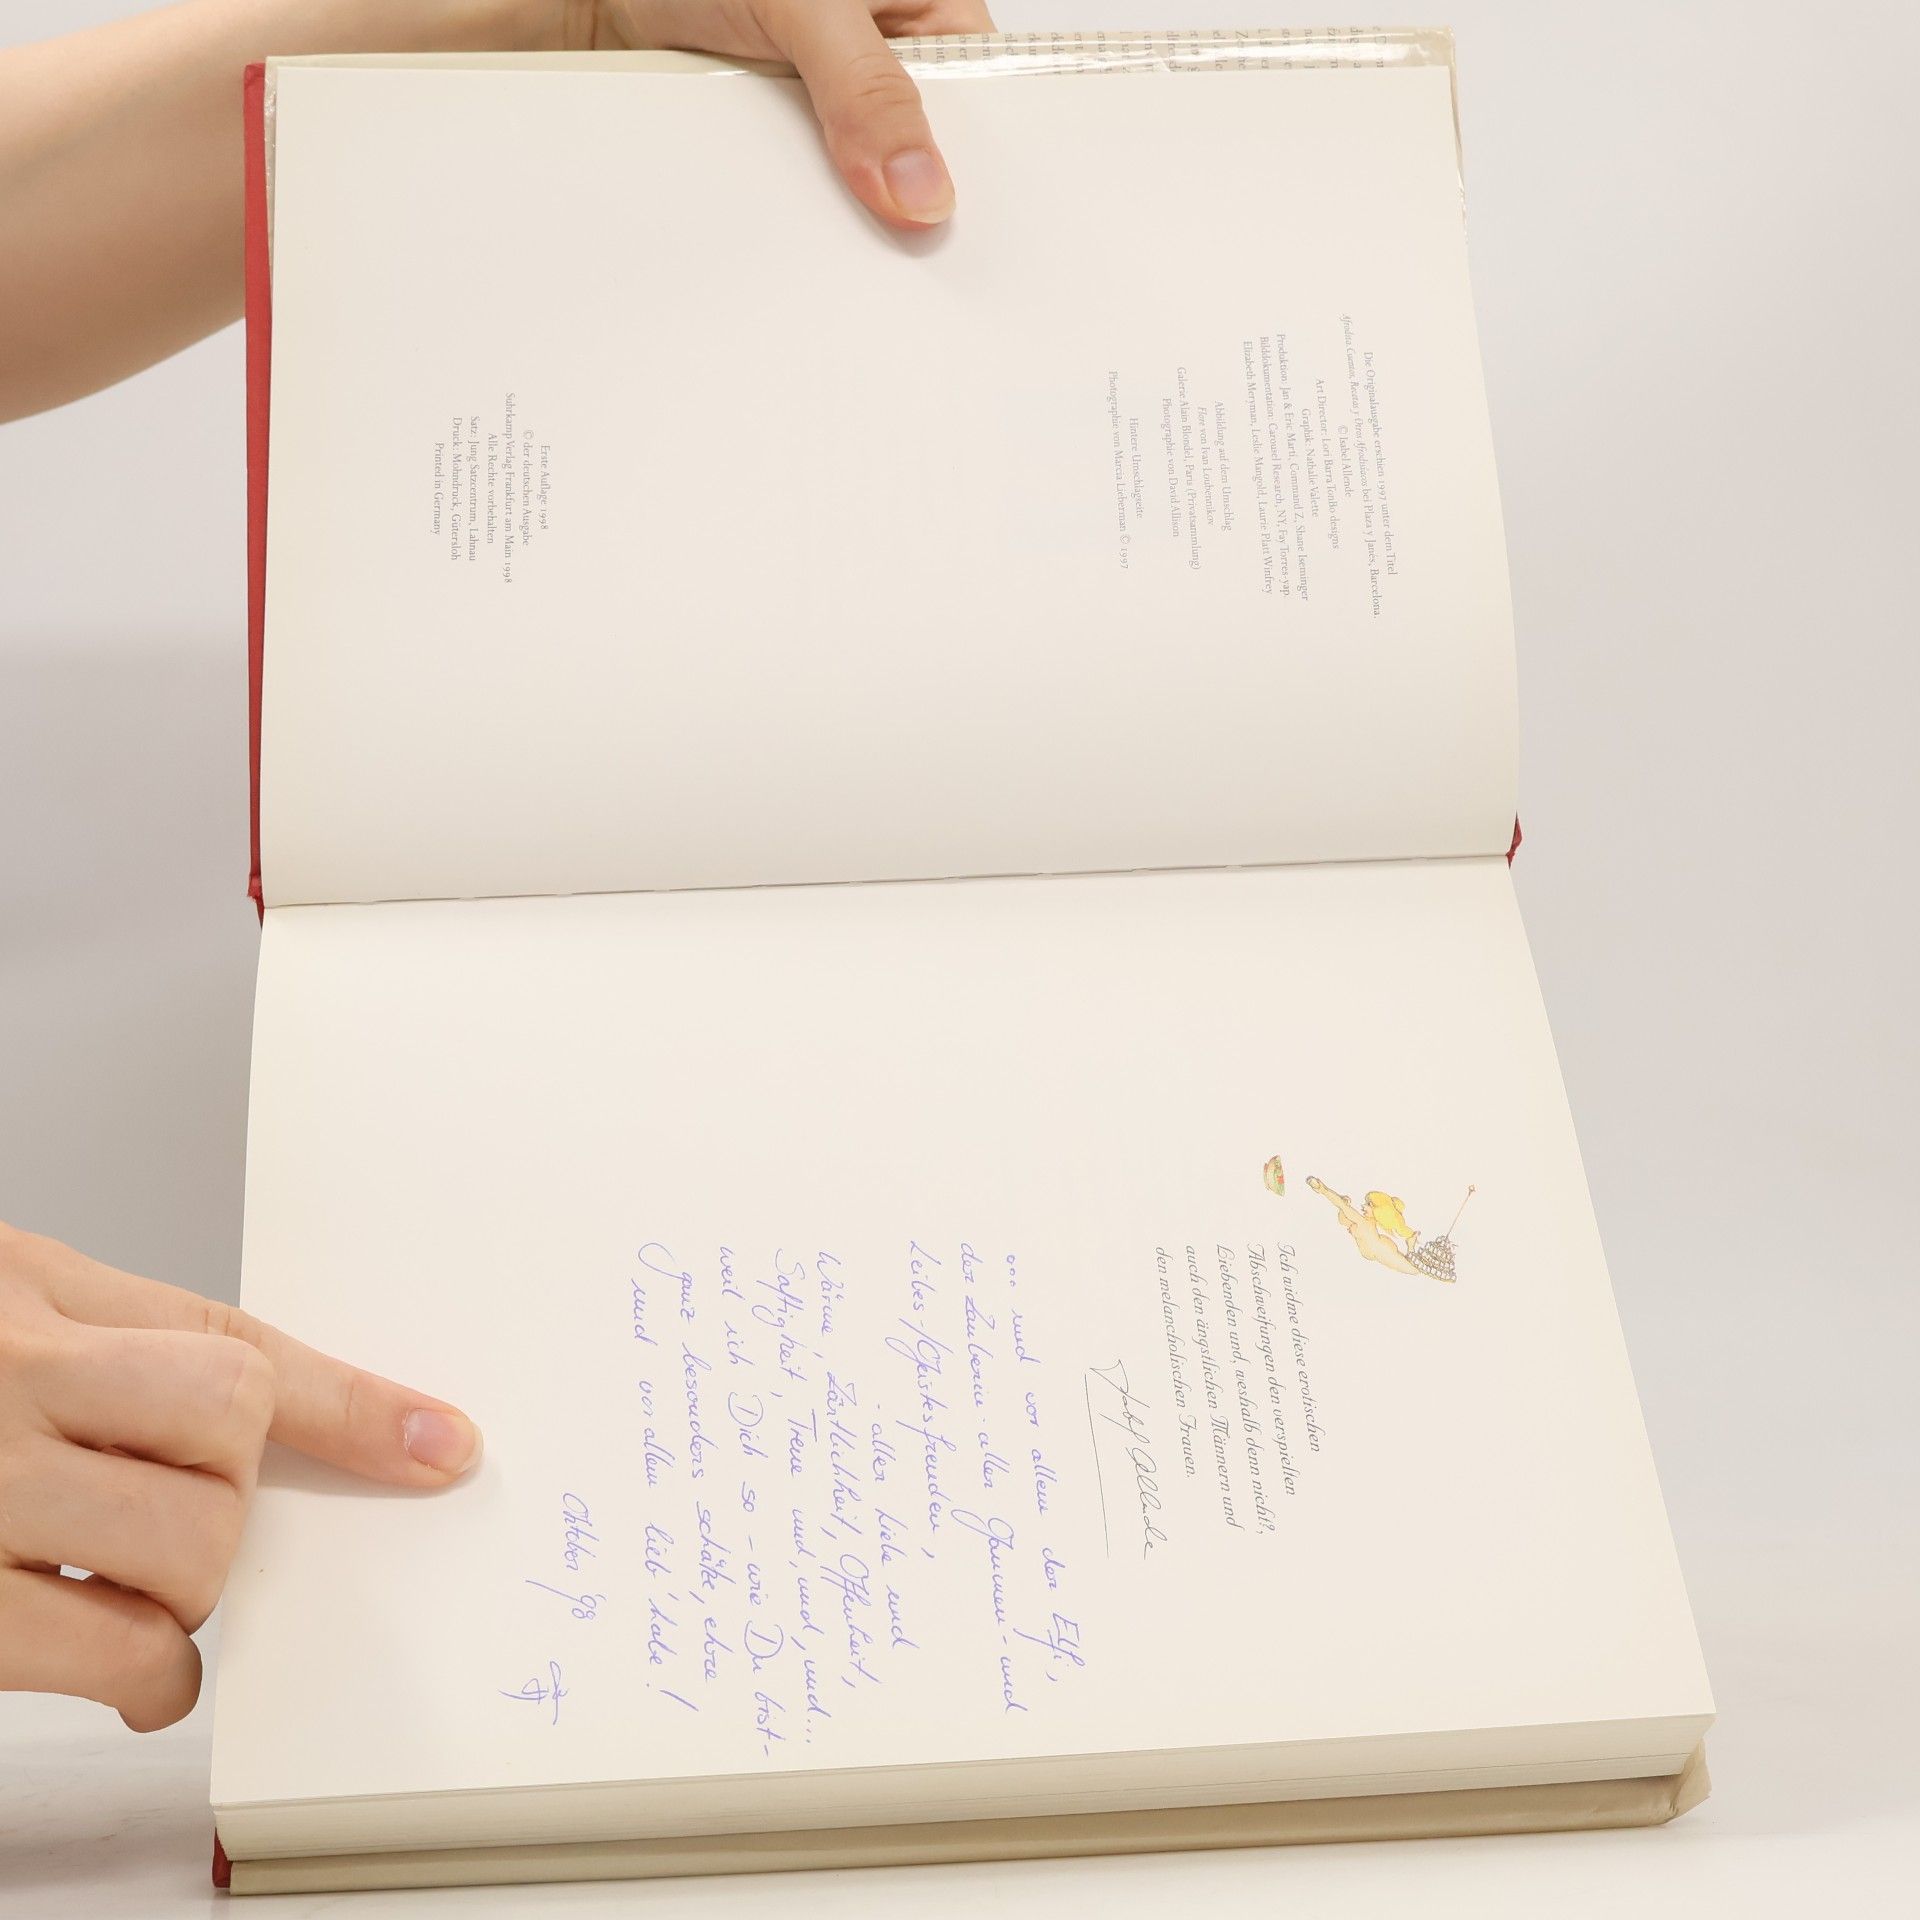 Die Originalausgabe erschien 1997 unter dem Titel
Afrodita. Cuentos, Recetas y Otros Afrodisíacos bei Plaza y Janés, Barcelona.
© Isabel Allende
Art Director: Lori Barra TonBo designs
Graphik: Nathalie Valette
Produktion: Jan & Eric Martí, Command Z, Shane Iseminger
Bilddokumentation: Carousel Research, NY, Fay Torres-yap
Elizabeth Meryman, Leslie Mangold, Laurie Platt Winfrey
Abbildung auf dem Umschlag
Flore von Ivan Loubennikov
Galerie Alain Blondel, Paris (Privatsammlung)
Photographie von David Allison
Hintere Umschlagseite
Photographie von Marcia Lieberman © 1997
Erste Auflage 1998
© der deutschen Ausgabe
Suhrkamp Verlag Frankfurt am Main 1998
Alle Rechte vorbehalten
Satz: Jung Satzcentrum, Lahnau
Druck: Mohndruck, Gütersloh
Printed in Germany
Ich widme diese erotischen
Abschweifungen den verspielten
Liebenden und, weshalb denn nicht?,
auch den ängstlichen Männern und
den melancholischen Frauen.
Isabel Allende
... und vor allem der Elfi,
der Zauberin aller Gaumen- und
Leibes-/Geistesfreuden,
- aller Liebe und
Wärme, Zärtlichkeit, Offenheit,
Saftigkeit, Treue und, und, und...
weil ich Dich so - wie Du bist -
ganz besonders schätze, ehre
und vor allem lieb' habe!
Oktober '98